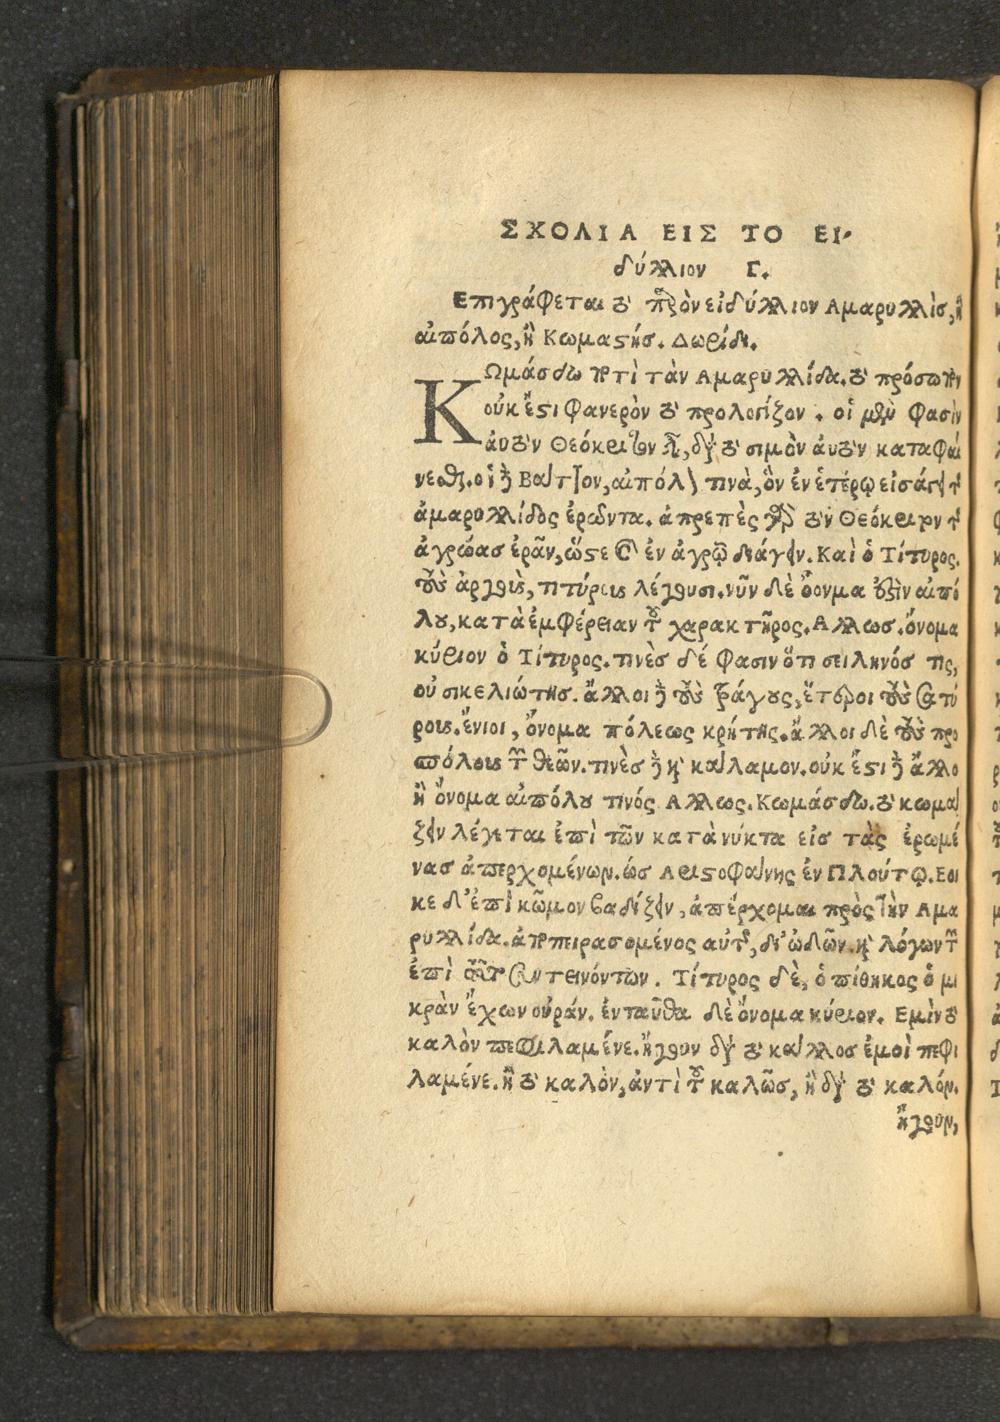 ΣΧΟΛΙΑ ΕΙΣ ΤΟ ΕΙ-
δύλλιον Γ.
Επιγράφεται τὸ παρὸν εἰδύλλιον Αμαρυλλὶσ, ἢ
αἰπόλος, ἢ Κωμαστήσ. Δωρίδι.
ΚΩμάσδω ποτὶ τὰν Αμαρυλλίδα. τὸ πρόσωπον
οὐκ ἔστι φανερὸν τὸ προλογίζον. οἱ μὲν φασὶν
ἀυτὸν Θεόκριτον εἶναι, διὰ τὸ σιμὸν ἀυτὸν καταφαί
νεσθαι. οἱ δὲ Βάττον, αἰπόλον τινὰ, ὃν ἐν ἑτέρῳ εἰσάγει τῆς
ἀμαρυλλίδος ἐρῶντα. ἀπρεπὲς γὰρ τὸν Θεόκριτον τῆς
ἀγρώασ ἐρᾶν, ὥστε καὶ ἐν ἀγρῷ διάγειν. Καὶ ὁ Τίτυρος.
τοὺς τιτύρους λέγουσι. νῦν δὲ ὄονμα τοῦτὶν αἰπό
λου, κατὰ ἐμφέρειαν τοῦ χαρακτῆρος. Αλλωσ. ὄνομα
κύριον ὁ Τίτυρος. τινὲς δέ φασιν ὅτι σειληνός τις,
οὐ σικελιώτησ. ἄλλοι δὲ τοὺς τράγους, ἕτεροι τοὺς Σατύ
ρους. ἔνιοι, ὄνομα πόλεως κρήτης. ἄλλοι δὲ τοὺς προ
πόλους τῶν θεῶν. τινὲσ δὲ καὶ κάλαμον. οὐκ ἔστι δὲ ἄλλο
ἢ ὄνομα αἰπόλου τινός Αλλως. Κωμάσδω. τὸ κωμά
ζειν λέγεται ἐπὶ τῶν κατὰ νύκτα εἰσ τὰς ἐρωμέ
νασ ἀπερχομένων. ὡσ Αριστοφάνης ἐν Πλούτῳ. Εοι
κε δ' ἐπὶ κῶμον βαδίζειν, ἀπέρχομαι πρὸς τὴν Αμα
ρυλλίδα. ἀποπειρασομένος αὐτῆς, δι' ὠδῶν. καὶ λόγων τῶν
ἐπὶ συντεινόντων. Τίτυρος δὲ, ὁ πίθηκος ὁ μι
κρὰν ἔχων οὐράν. ἐνταῦθα δὲ ὄνομα κύριον. Εμὶν τὸ
καλὸν πεφιλαμένε. ἤγουν διὰ τὸ κάλλοσ ἐμοὶ πεφι
λαμένε. ἢ τὸ καλὸν, ἀντὶ τοῦ καλῶσ, ἢ διὰ τὸ καλόν.
ἤγουν,